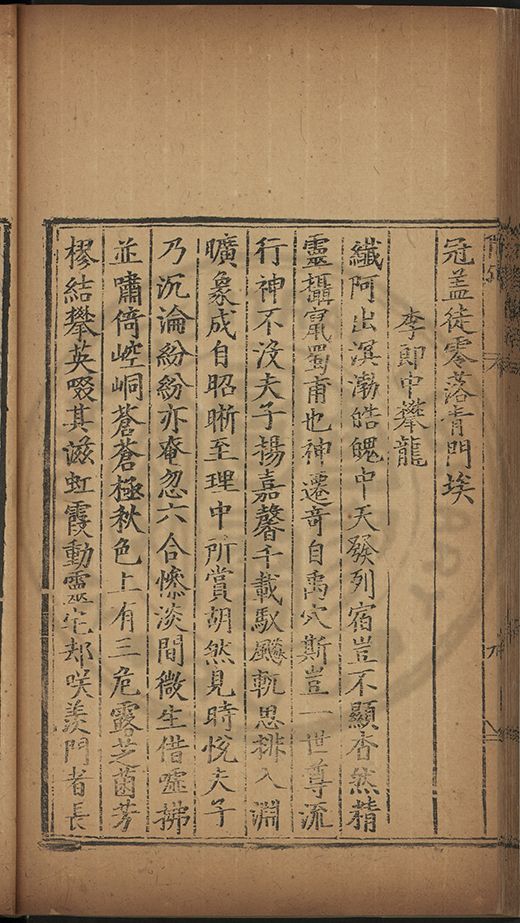 冠盖徒零落青門埃
李郎中攀龍
纖阿出溟渤皓魄中天發列宿豈不顯杳然精
靈攝寘蜀甫也神遷竒自禹穴斯豈一世尊流
行神不沒夫子揚嘉馨千載馭飈軌思排入淵
曠象成自昭晰至理中所賞胡然見時悅夫子
乃沉淪紛紛亦奄忽六合慘淡間微生借噓拂
並嘯倚崆峒蒼蒼極秋色上有三危露芝菌芳
樛結攀英啜其滋虹霞動靈宅却咲羨門者長